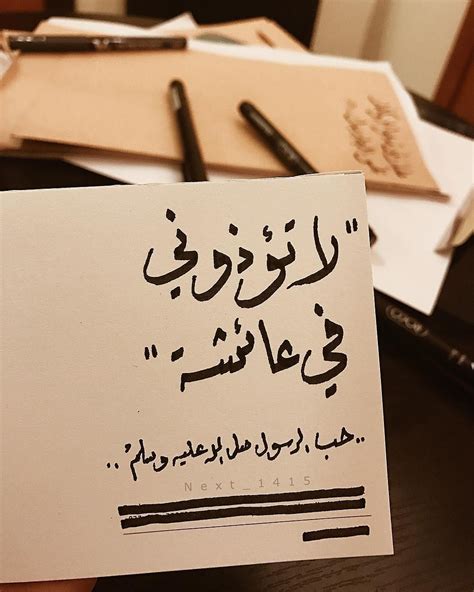 "لا تؤذوني
في عائشة"
..حب الرسول صلى الله عليه وسلم..
Next_1415